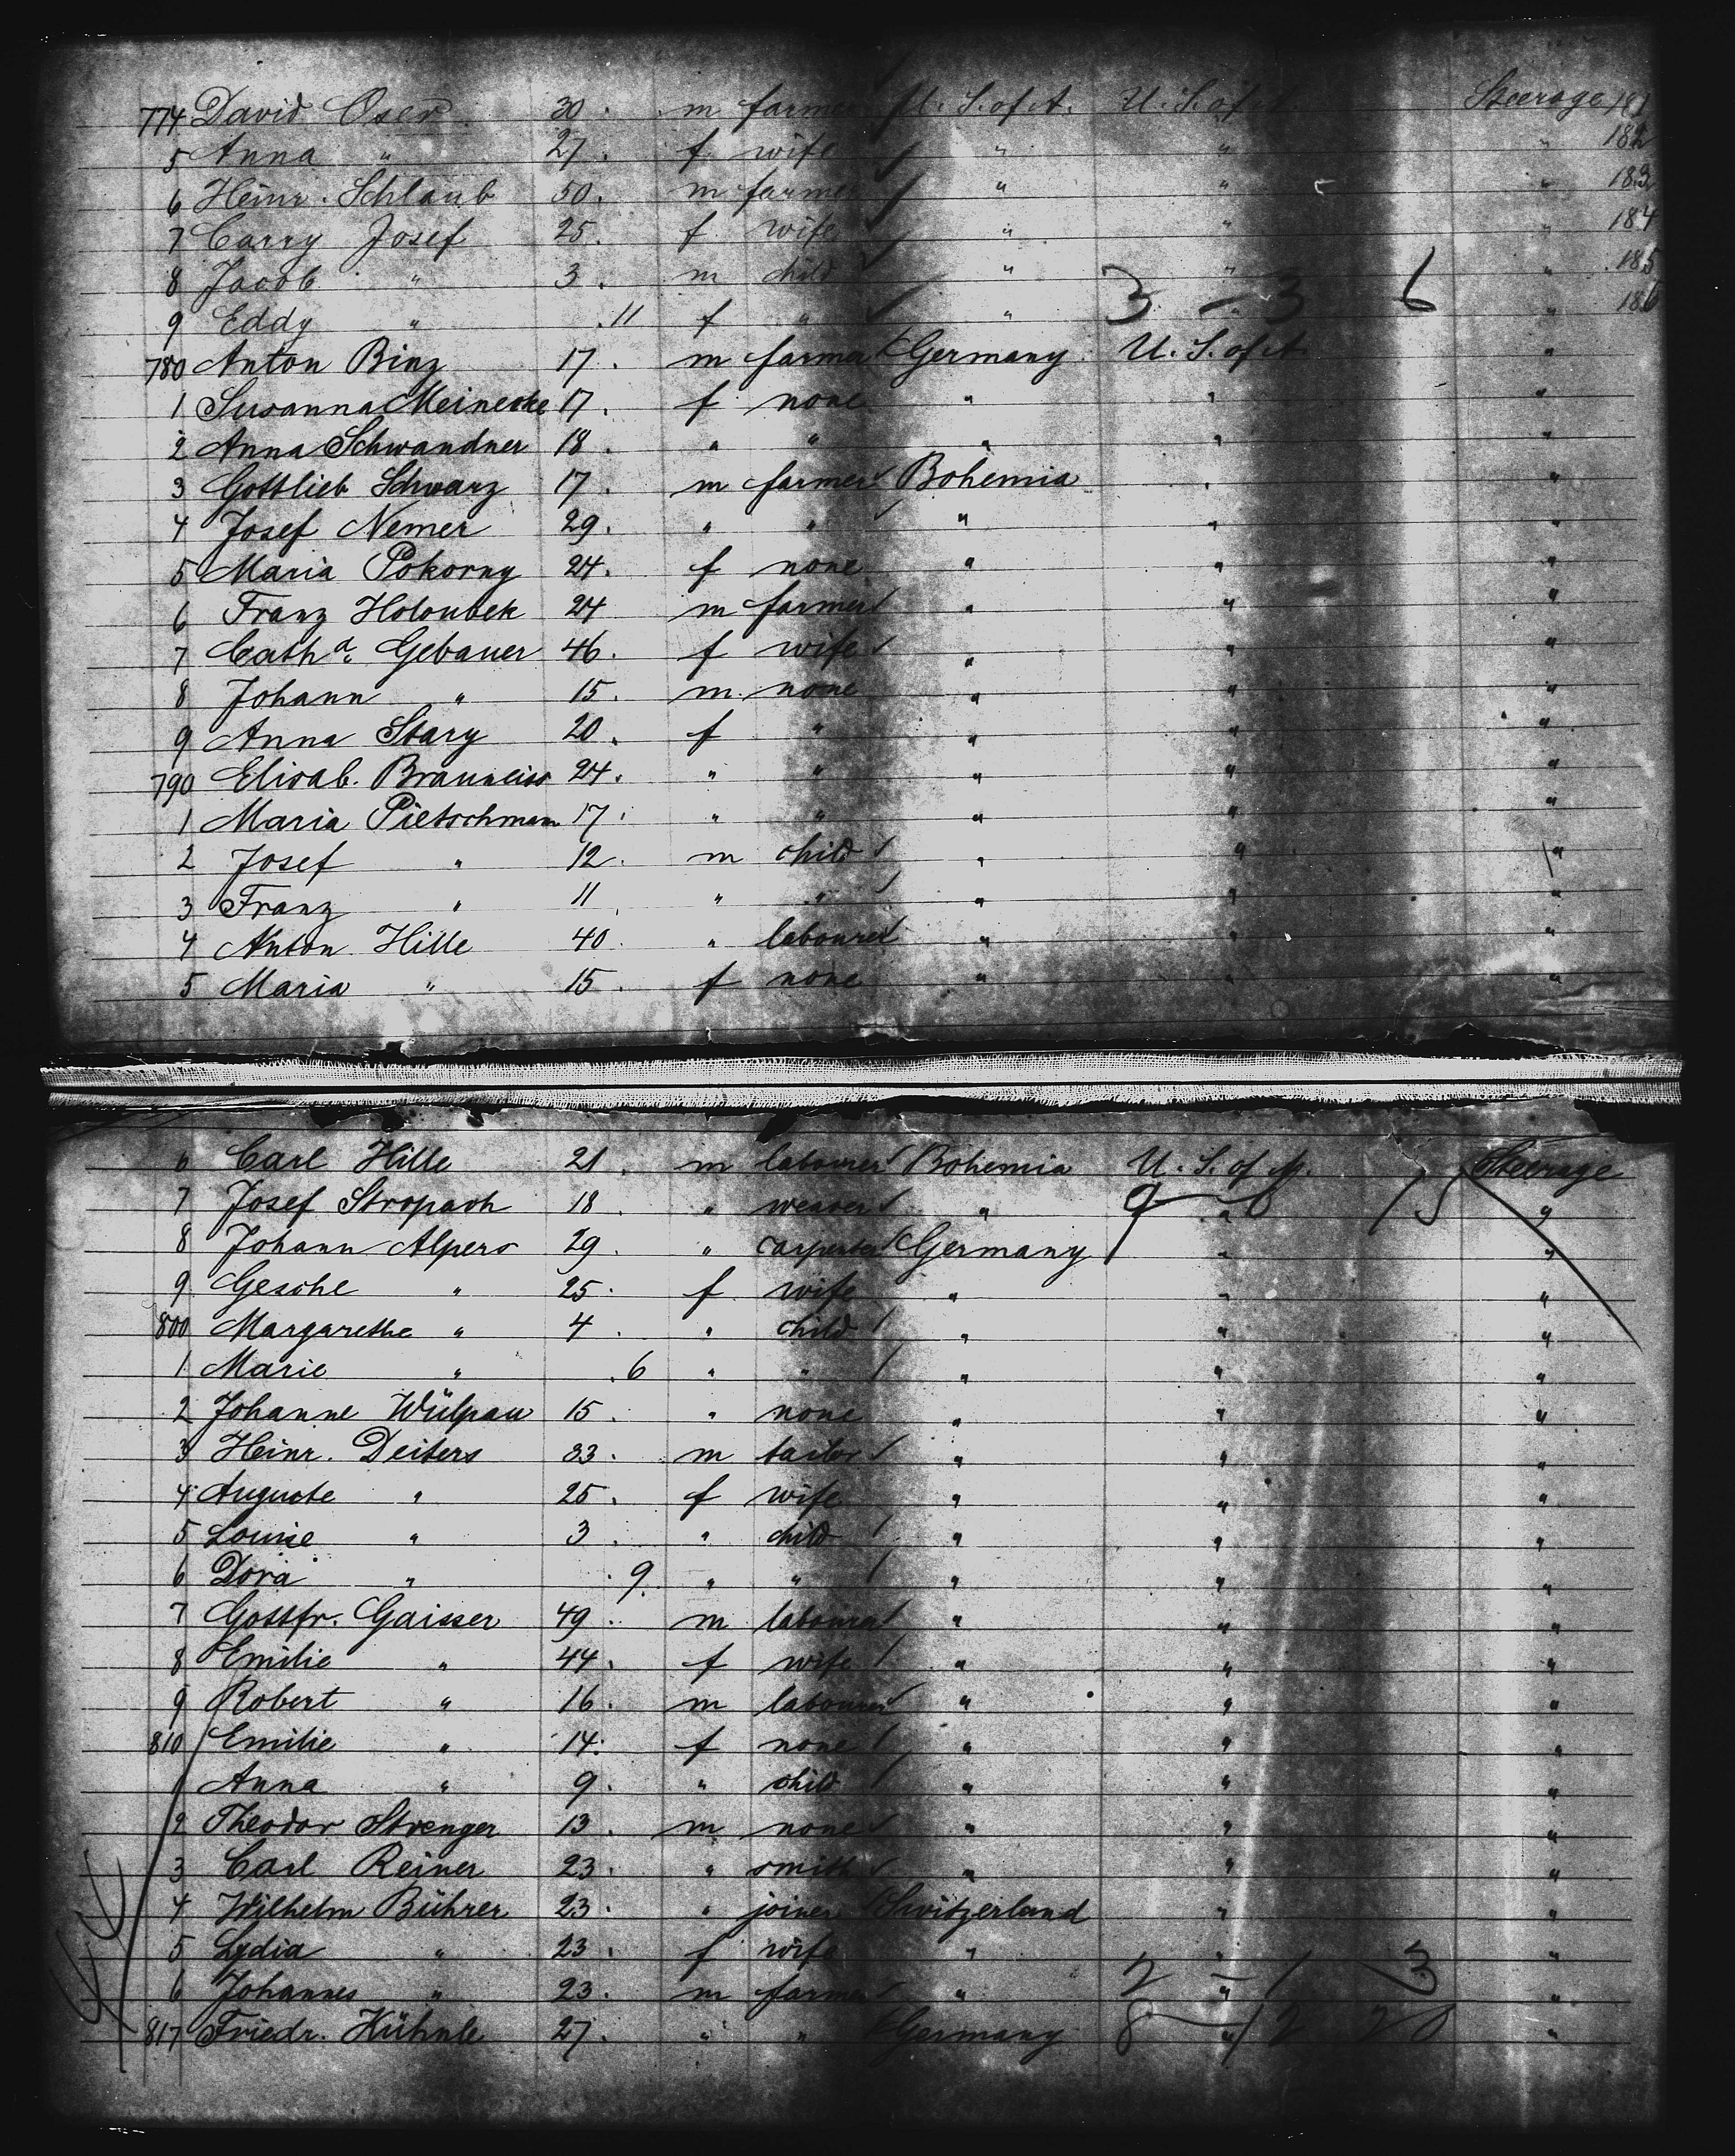 774 David Oser 30. m farmer U. S. of A. U. S. of A. Steerage 181
5 Anna " 27. f wife " " " 182
6 Heinr. Schlaub 50. m farmer " " " 183
7 Carry Josef 25. f wife " " " 184
8 Jacob " 3. m child " " " 185
9 Eddy " .11 f " " 3 - 3 6 " 186
780 Anton Binz 17. m farmer Germany U. S. of A. "
1 Susanna Meinecke 17. f none " " "
2 Anna Schwandner 18. " " " " "
3 Gottlieb Schwarz 17. m farmer Bohemia " "
4 Josef Nemer 29. " " " " "
5 Maria Pokorny 24. f none " " "
6 Franz Holoubek 24 m farmer " " "
7 Catha. Gebauer 46. f wife " " "
8 Johann " 15. m none " " "
9 Anna Stary 20. f " " " "
790 Elisab. Brauneiss 24. " " " " "
1 Maria Pietschmann 17. " " " " "
2 Josef " 12. m child " " "
3 Franz " 11. " " " " "
4 Anton Hille 40. " labourer " " "
5 Maria " 15. f none " " "
6 Carl Hille 21. m labourer Bohemia U. S. of A. Steerage
7 Josef Stropach 18. " weaver " " "
8 Johann Alpers 29. " carpenter Germany " "
9 Gesche " 25. f wife " " "
800 Margarethe " 4. " child " " "
1 Marie " .6 " " " " "
2 Johanne Wülpau 15. " none " " "
3 Heinr. Deiters 33. m tailor " " "
4 Auguste " 25. f wife " " "
5 Louise " 3. " child " " "
6 Dora " .9. " " " " "
7 Gottfr. Gaisser 49. m labourer " " "
8 Emilie " 44. f wife " " "
9 Robert " 16. m labourer " " "
810 Emilie " 14. f none " " "
1 Anna " 9. " child " " "
2 Theodor Strenger 13. m none " " "
3 Carl Reiner 23. " smith " " "
4 Wilhelm Bührer 23. " joiner Switzerland " "
5 Lydia " 23. f wife " " "
6 Johannes " 23. m farmer " 2 - 1 3 "
817 Friedr. Kühnle 27. " " Germany 8 - 12 20 "